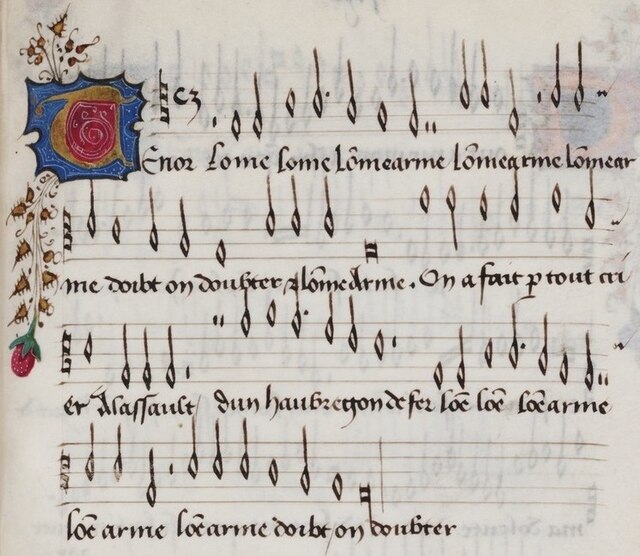 Tenor Lome lome lõmearme lõmearme lõmear
me doibt on doubter & lõme Arme. On a fait p tout cri
er A lassault dun haubregon de fer lõe lõe lõe arme
lõe arme lõe arme doibt on doubter